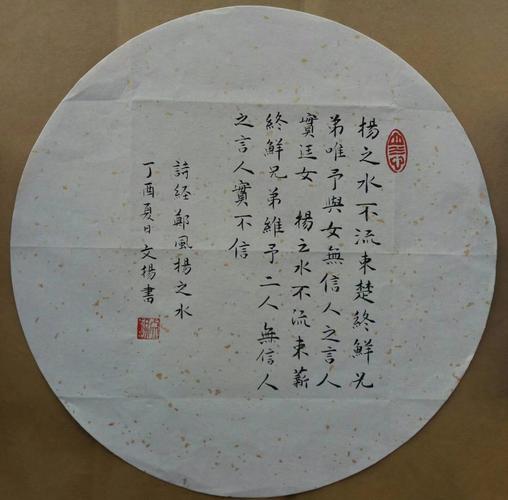 揚之水不流束楚終鮮兄
弟唯予與女無信人之言人
實迋女 揚之水不流束薪
終鮮兄弟維予二人 無信人
之言人實不信
詩経鄭風揚之水
丁酉夏日文揚書